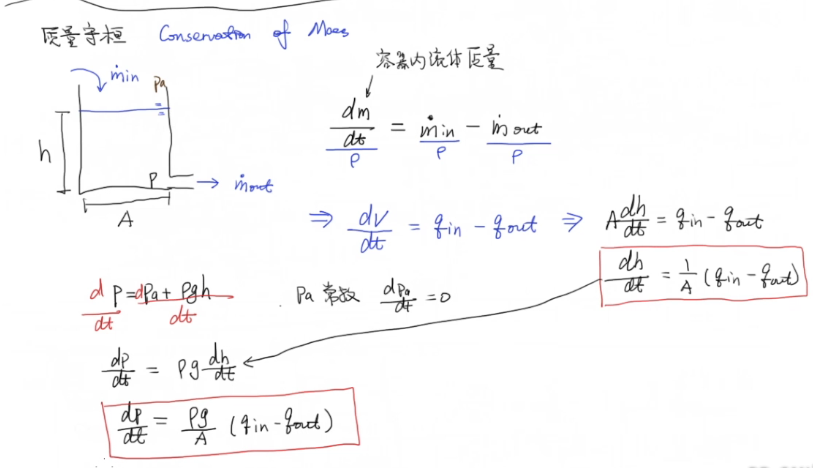 质量守恒 Conservation of Mass
容器内流体质量
ṁin
Pa
h
P
ṁout
A
dm/dt / ρ = ṁin/ρ - ṁout/ρ
⇒ dV/dt = qin - qout ⇒ A dh/dt = qin - qout
dh/dt = 1/A (qin - qout)
d/dt P = dPa + ρgh / dt
Pa 常数 dPa/dt = 0
dP/dt = ρg dh/dt
dP/dt = ρg/A (qin - qout)